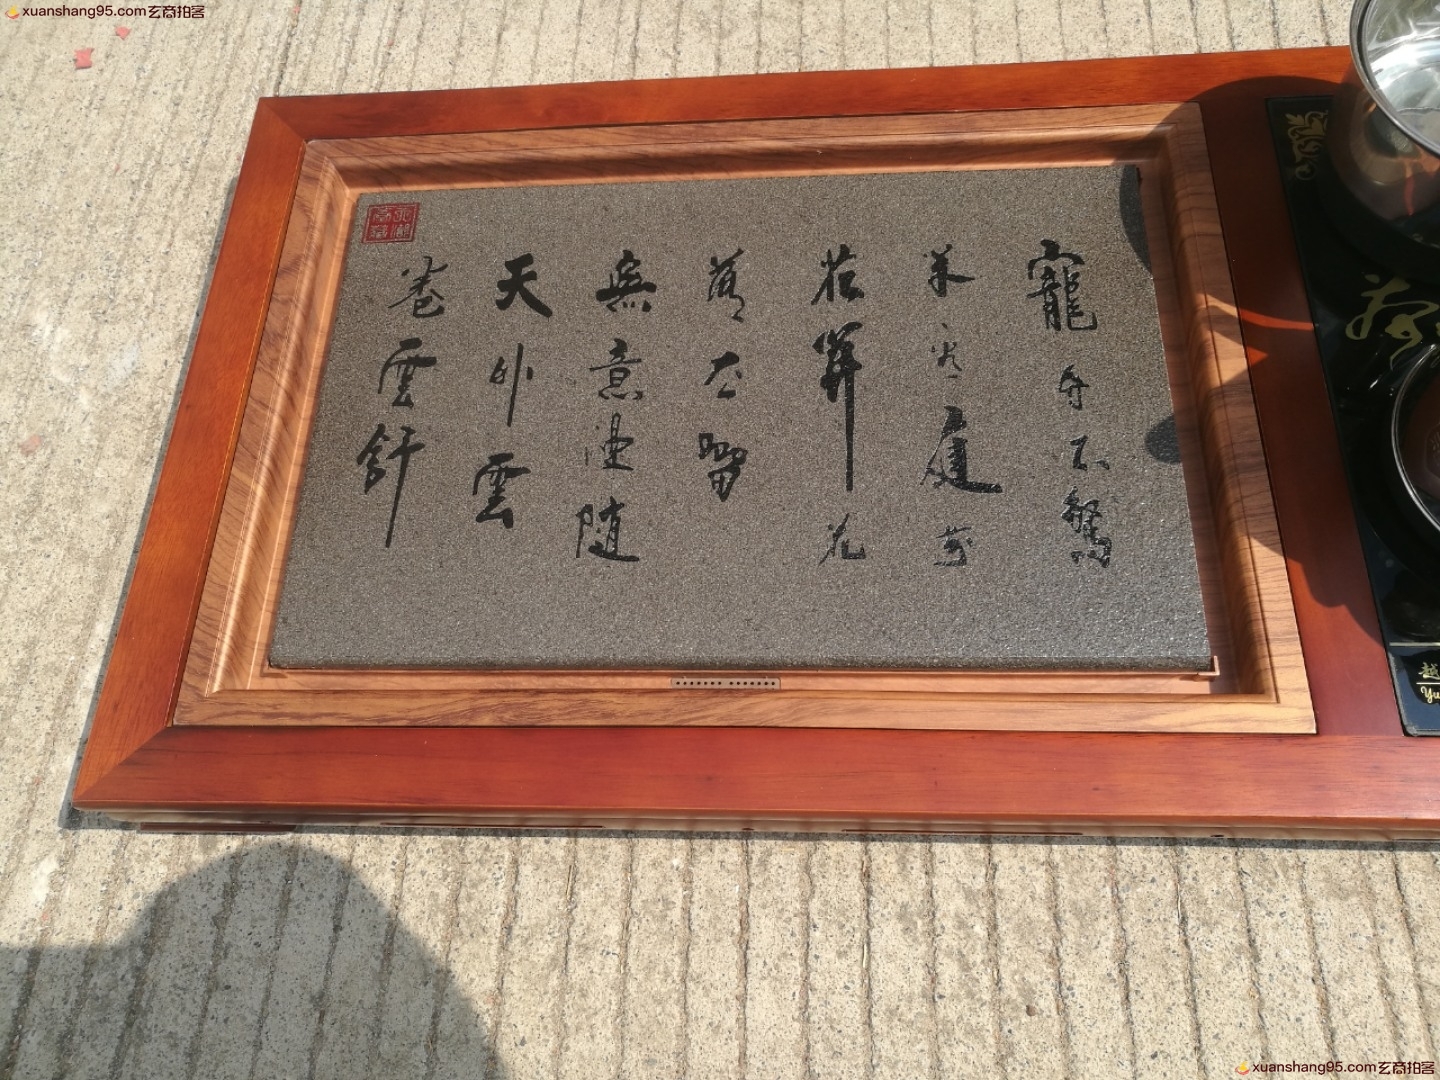 xuanshang95.com玄商拍客
寵辱不驚
閑看庭前
花開花
落去留
無意漫隨
天外雲
卷雲舒
越
Yu
xuanshang95.com玄商拍客